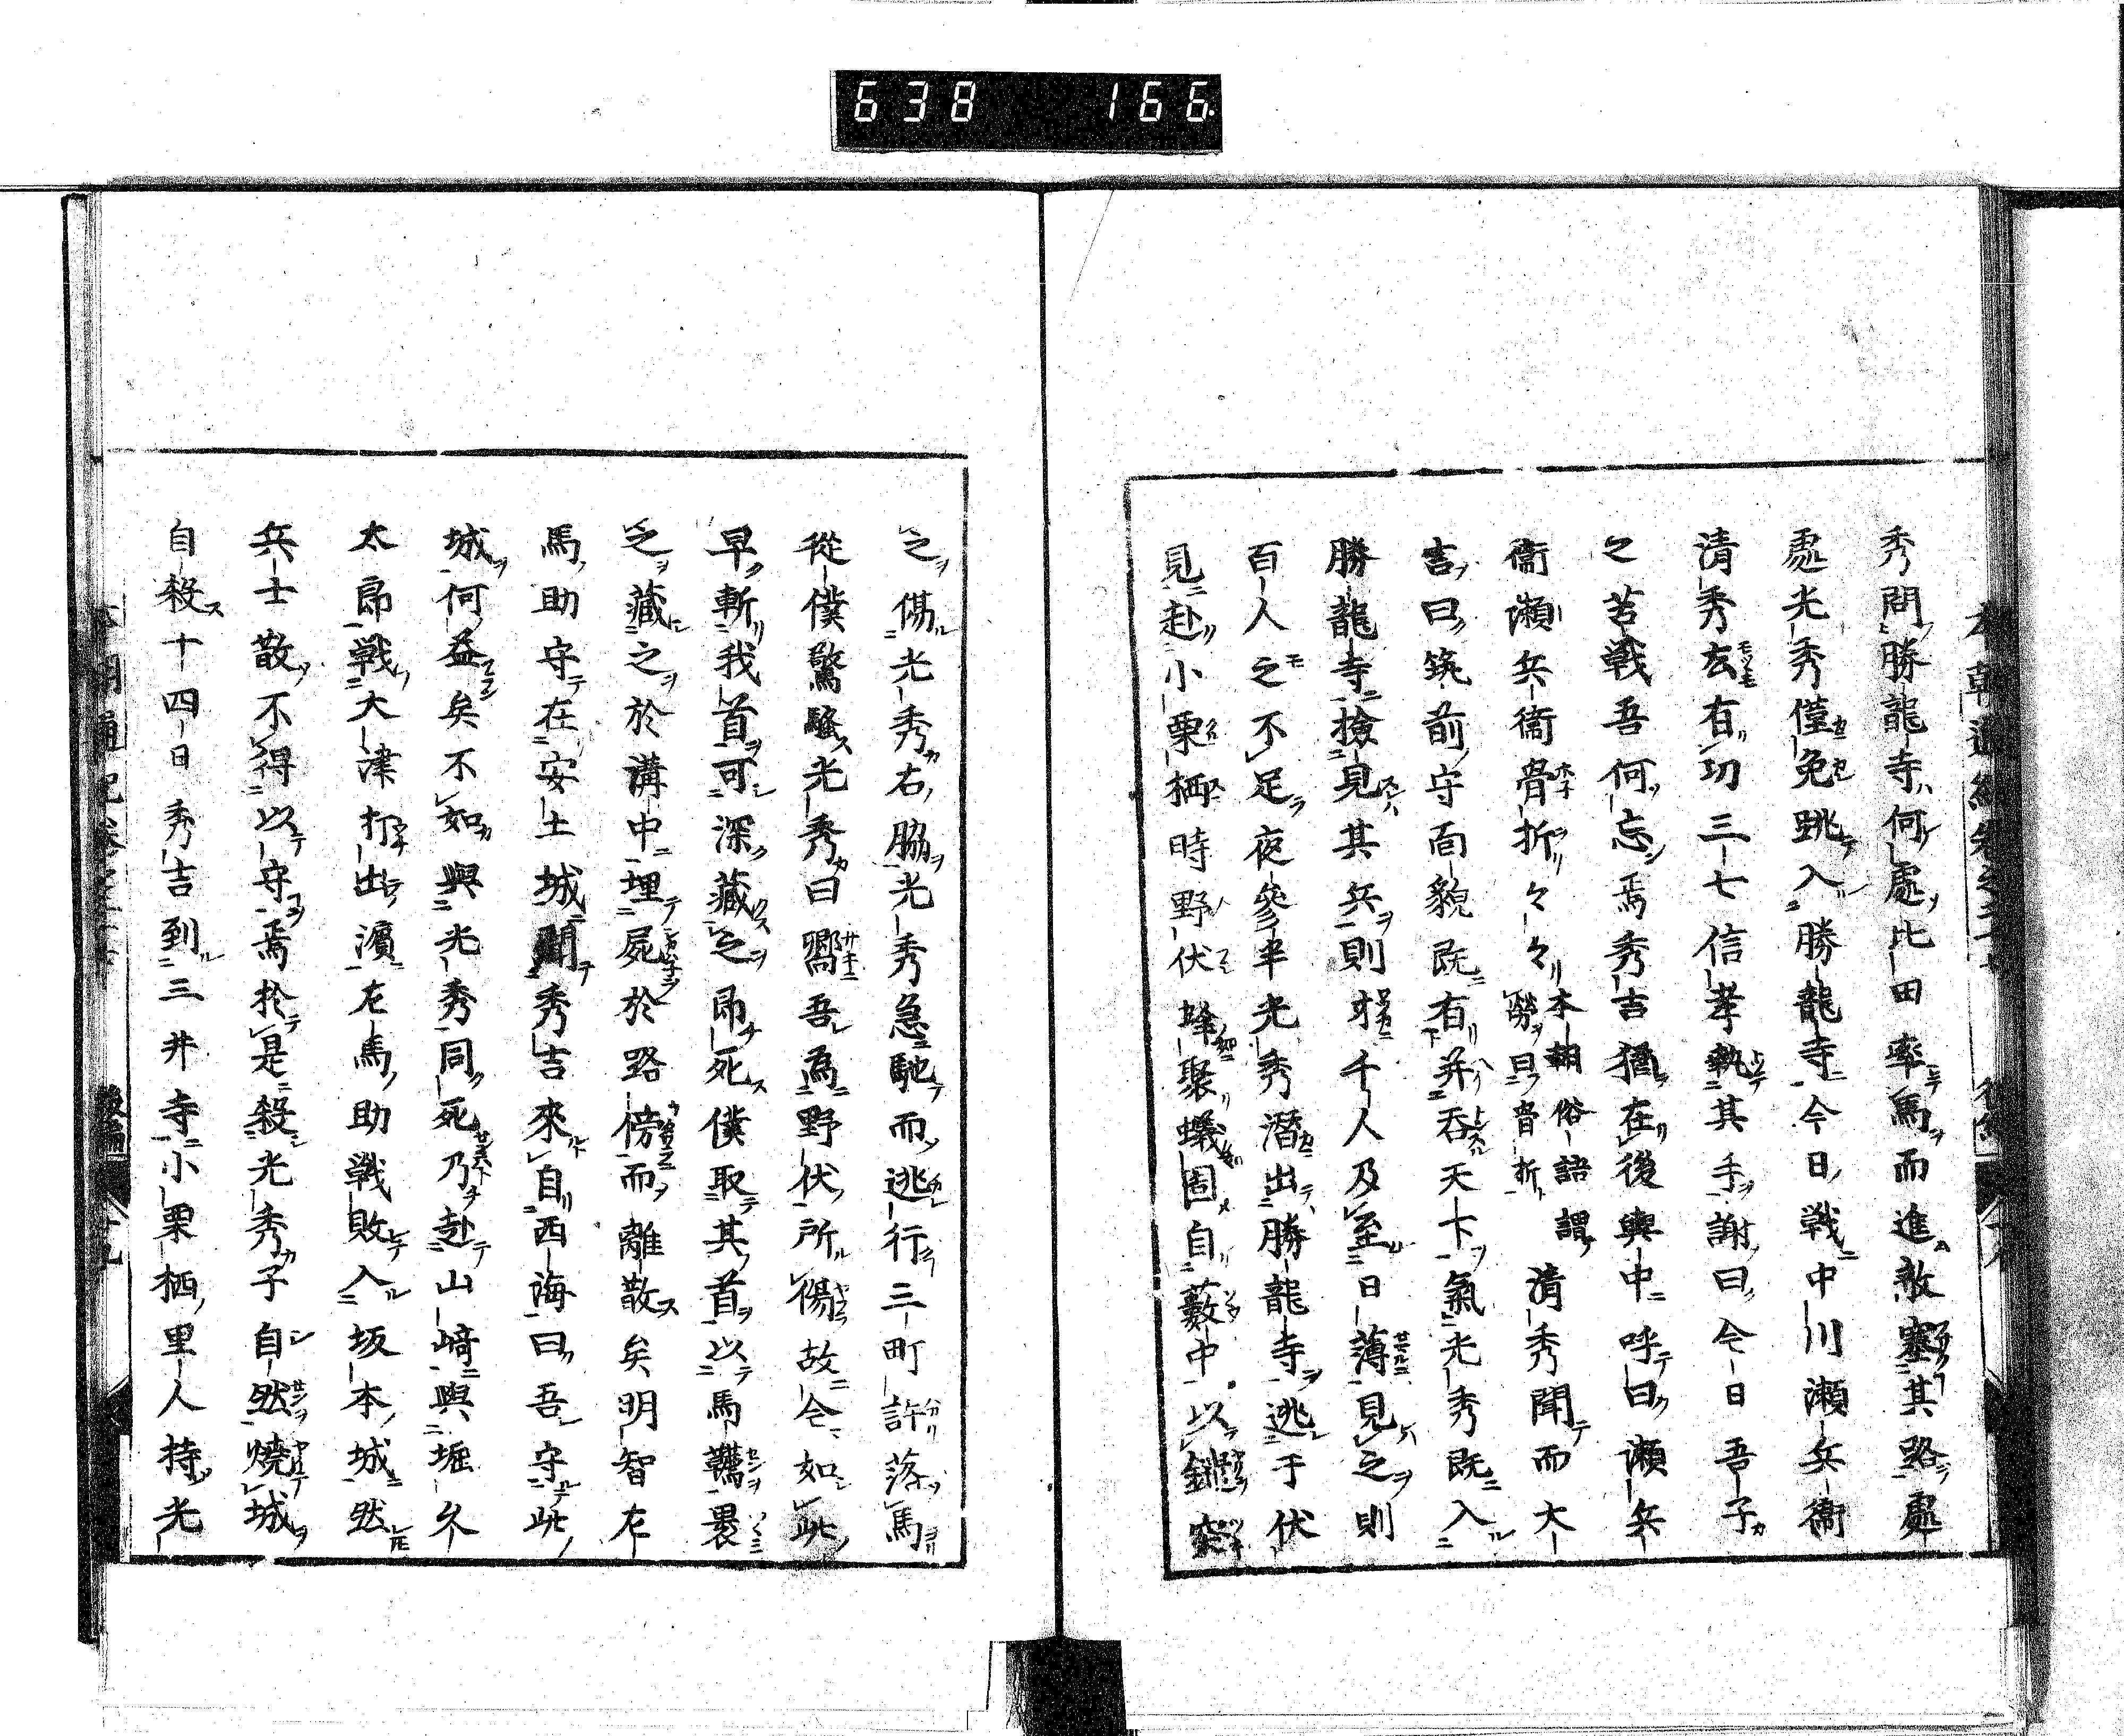 638 166
秀問勝龍寺何處比田率馬而進敵塞其路處
處光秀僅免跳入勝龍寺今日戰中川瀬兵衞
清秀尤有功三七信孝執其手謝曰今日吾子
之苦戰吾何忘焉秀吉猶在後輿中呼曰瀬兵
衞瀬兵衞骨折々々本朝俗語謂勞曰骨折清秀聞而大
吉曰筑前守面貌既有并呑天下氣光秀既入
勝龍寺撿見其兵則才千人及至日薄見之則
百人之不足夜參半光秀潛出勝龍寺逃于伏
見赴小栗栖時野伏蜂聚蟻固自藪中以鎗突
之傷光秀右脇光秀急馳而逃行三町許落馬
從僕驚騷光秀曰嚮吾爲野伏所傷故今如此
早斬我首可深藏之即死僕取其首以馬韉裹
之藏之於溝中埋屍於路傍而離散矣明智左
馬助守在安土城聞秀吉來自西海曰吾守此
城何益矣不如與光秀同死乃赴山﨑與堀久
太郎戰大津打出濱左馬助戰敗入坂本城然
兵士散不得以守焉於是殺光秀子自然燒城
自殺十四日秀吉到三井寺小栗栖里人持光